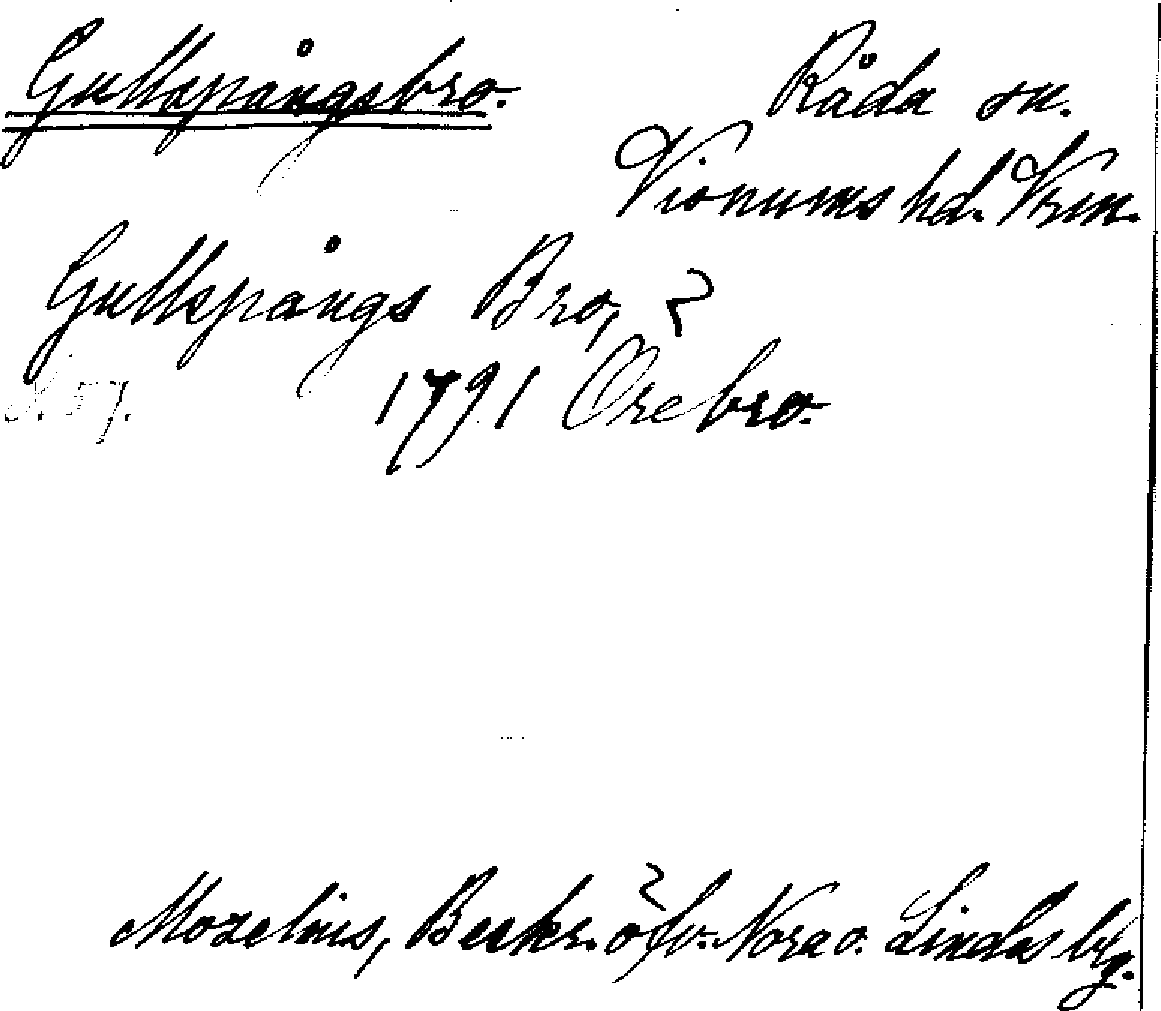 Gullspångsbro.
Råda sn.
Visnums hd. Vrm.
Gullspångs Bro,
S. 57.
1791 Örebro.
Mozelius, Beskr. öfv. Nora o. Lindes blg.